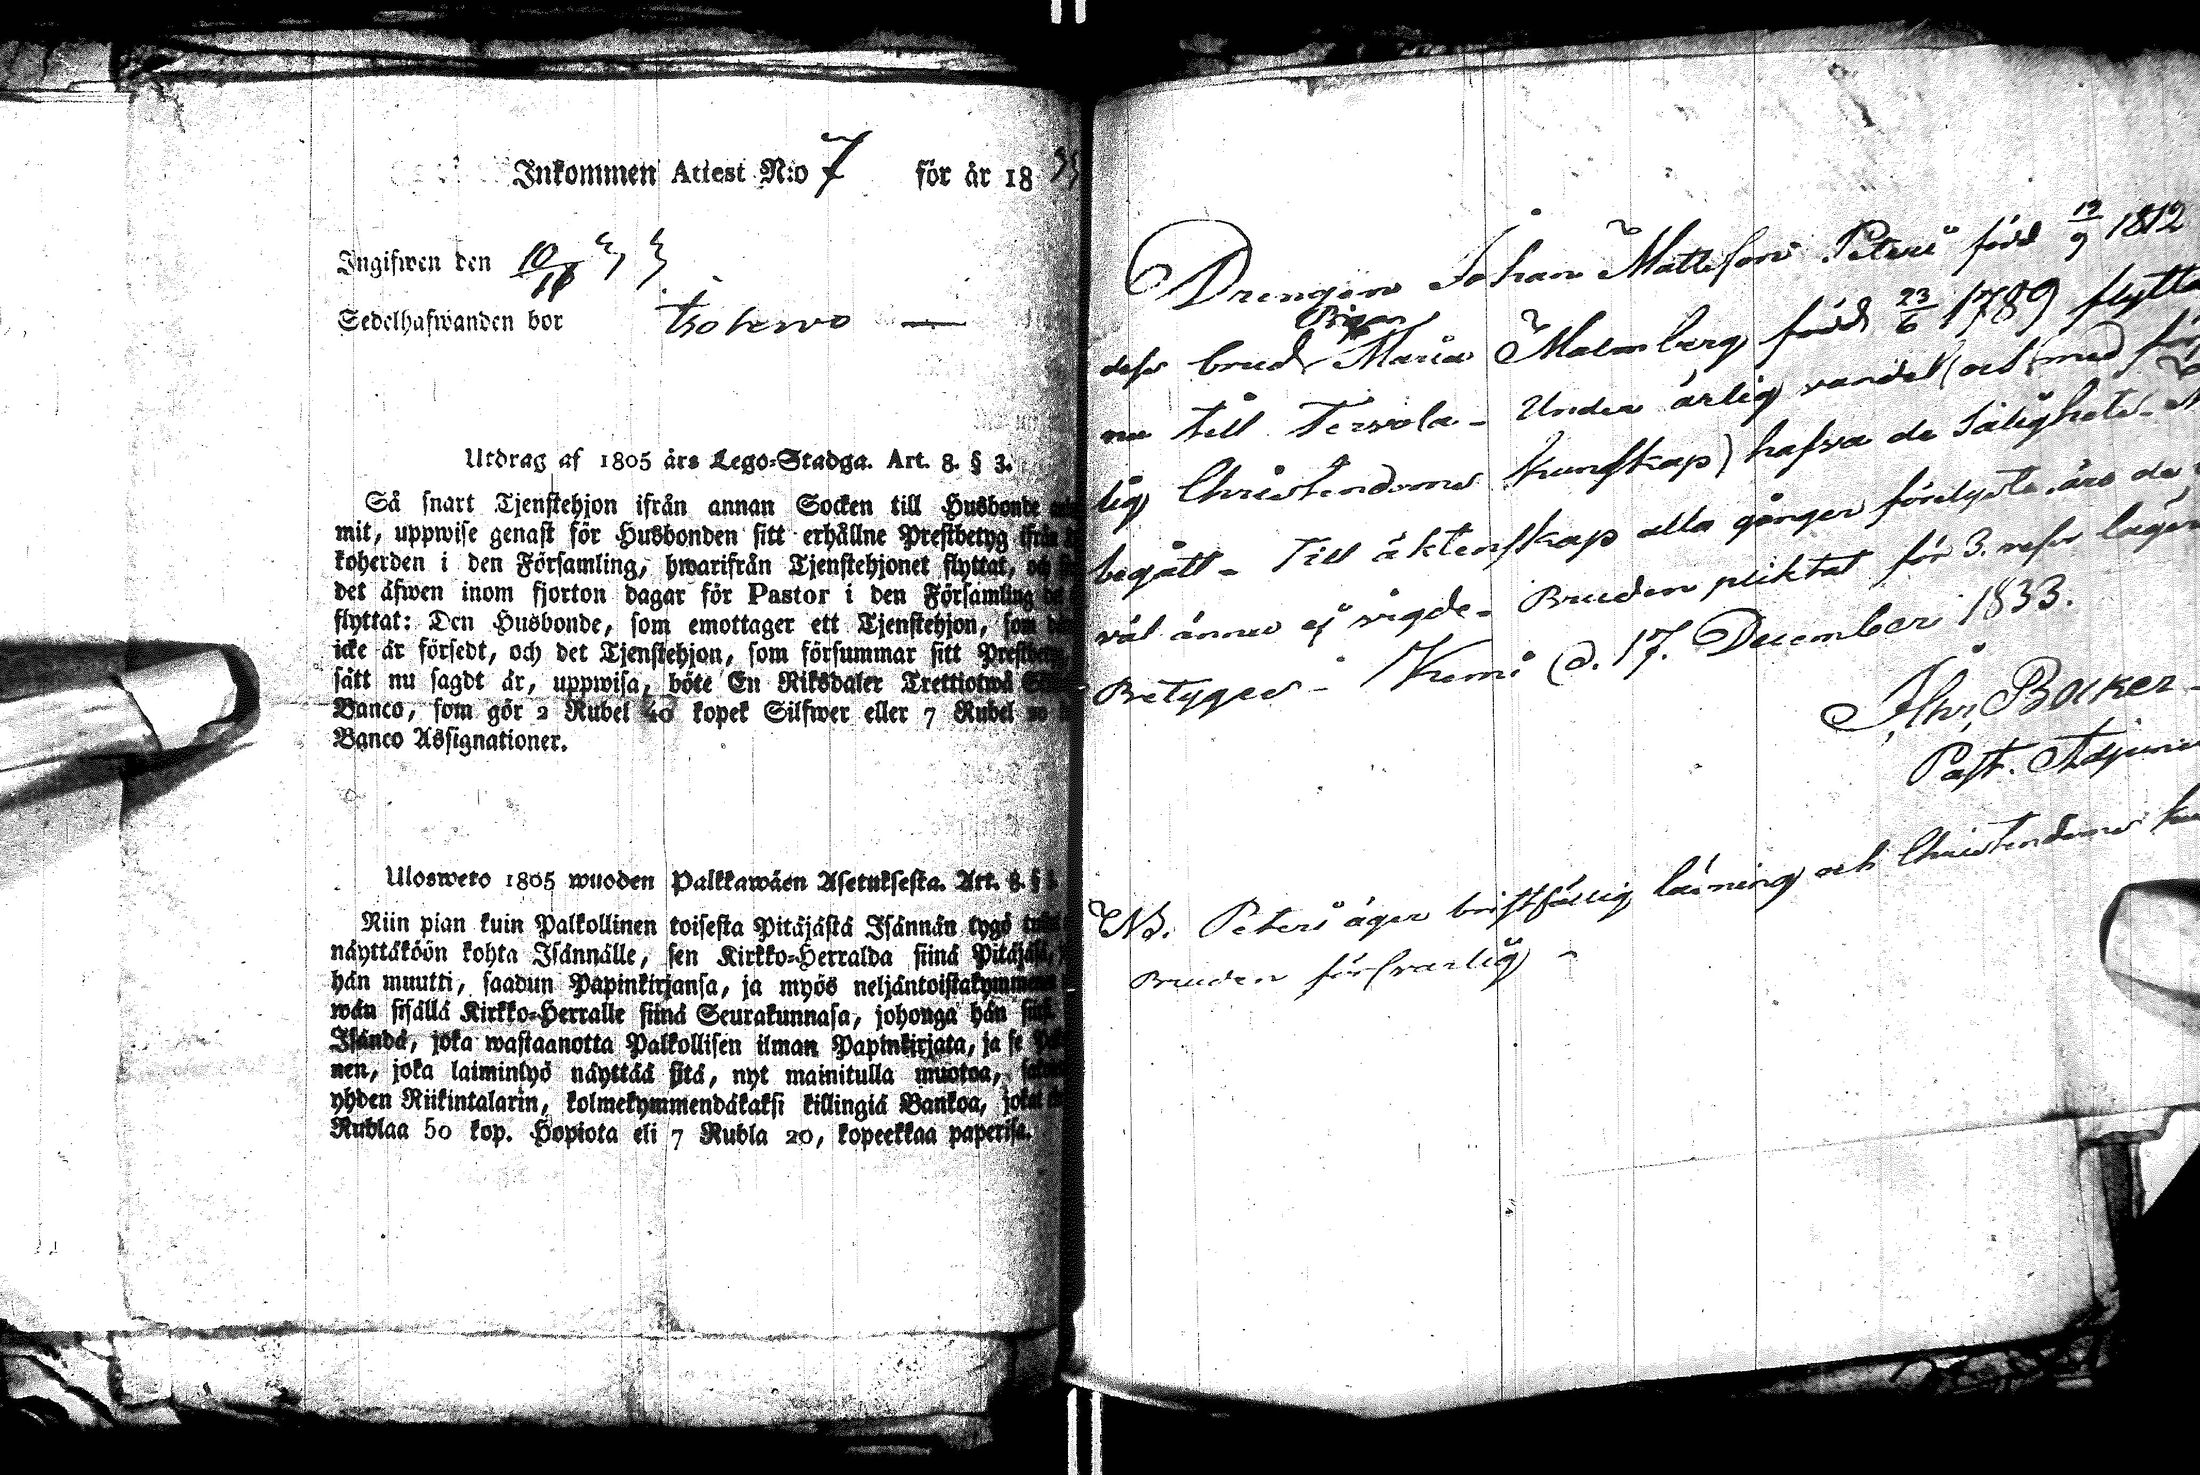 Inkommen Attest N:o 7 för år 18 33
Ingifwen den 10/11 33
Sedelhafwanden bor
Utdrag af 1805 års Lego-Stadga. Art. 8. § 3.
Så snart Tjenstehjon ifrån annan Socken till Husbonde
mit, uppwise genast för Husbonden sitt erhållne Prestbetyg ifrån
koherden i den Församling, hwarifrån Tjenstehjonet flyttat, och
det äfwen inom fjorton dagar för Pastor i den Församling
flyttat: Den Husbonde, som emottager ett Tjenstehjon, som
icke är försedt, och det Tjenstehjon, som försummar sitt Prestbetyg
sätt nu sagdt är, uppwisa, böte En Riksdaler Trettiotwå
Banco, som gör 2 Rubel 40 kopek Silfwer eller 7 Rubel 20
Banco Assignationer.
Ulosweto 1805 wuoden Palkkawäen Asetuksesta. Art. 8. §
Niin pian kuin Palkollinen toisesta Pitäjästä Isännän tygö
näyttäköön kohta Isännälle, sen Kirkko-Herralda siinä Pitäjäsä,
hän muutti, saadun Papinkirjansa, ja myös neljäntoistakymmenen
wän sisällä Kirkko-Herralle siinä Seurakunnasa, johonga hän
Isändä, joka wastaanotta Palkollisen ilman Papinkirjata, ja se
nen, joka laiminlyö näyttää sitä, nyt mainitulla muotoa,
yhden Riikintalarin, kolmekymmendäkaksi killingiä Bankoa, jokai
Rublaa 50 kop. Hopiota eli 7 Rubla 20, kopeekkaa paperisa.
Drengen Johan Mattsson Peteri född 12/9 1812
Pigan
dess brud Maria Malmberg född 23/6 1789 flytta
nu till Tervola - Under ärlig vandel (och med för
lig Christendoms kunskap) hafva de Salighets-
begått - Till äktenskap alla gånger förelyste äro de
väl ännu ej vigde. Bruden pliktat för 3. resor läger
Betygas - Kemi d. 17. December 1833.
Past. Adjunc
NB. Peteri äger bristfällig läsning och Christendoms
Bruden försvarlig -